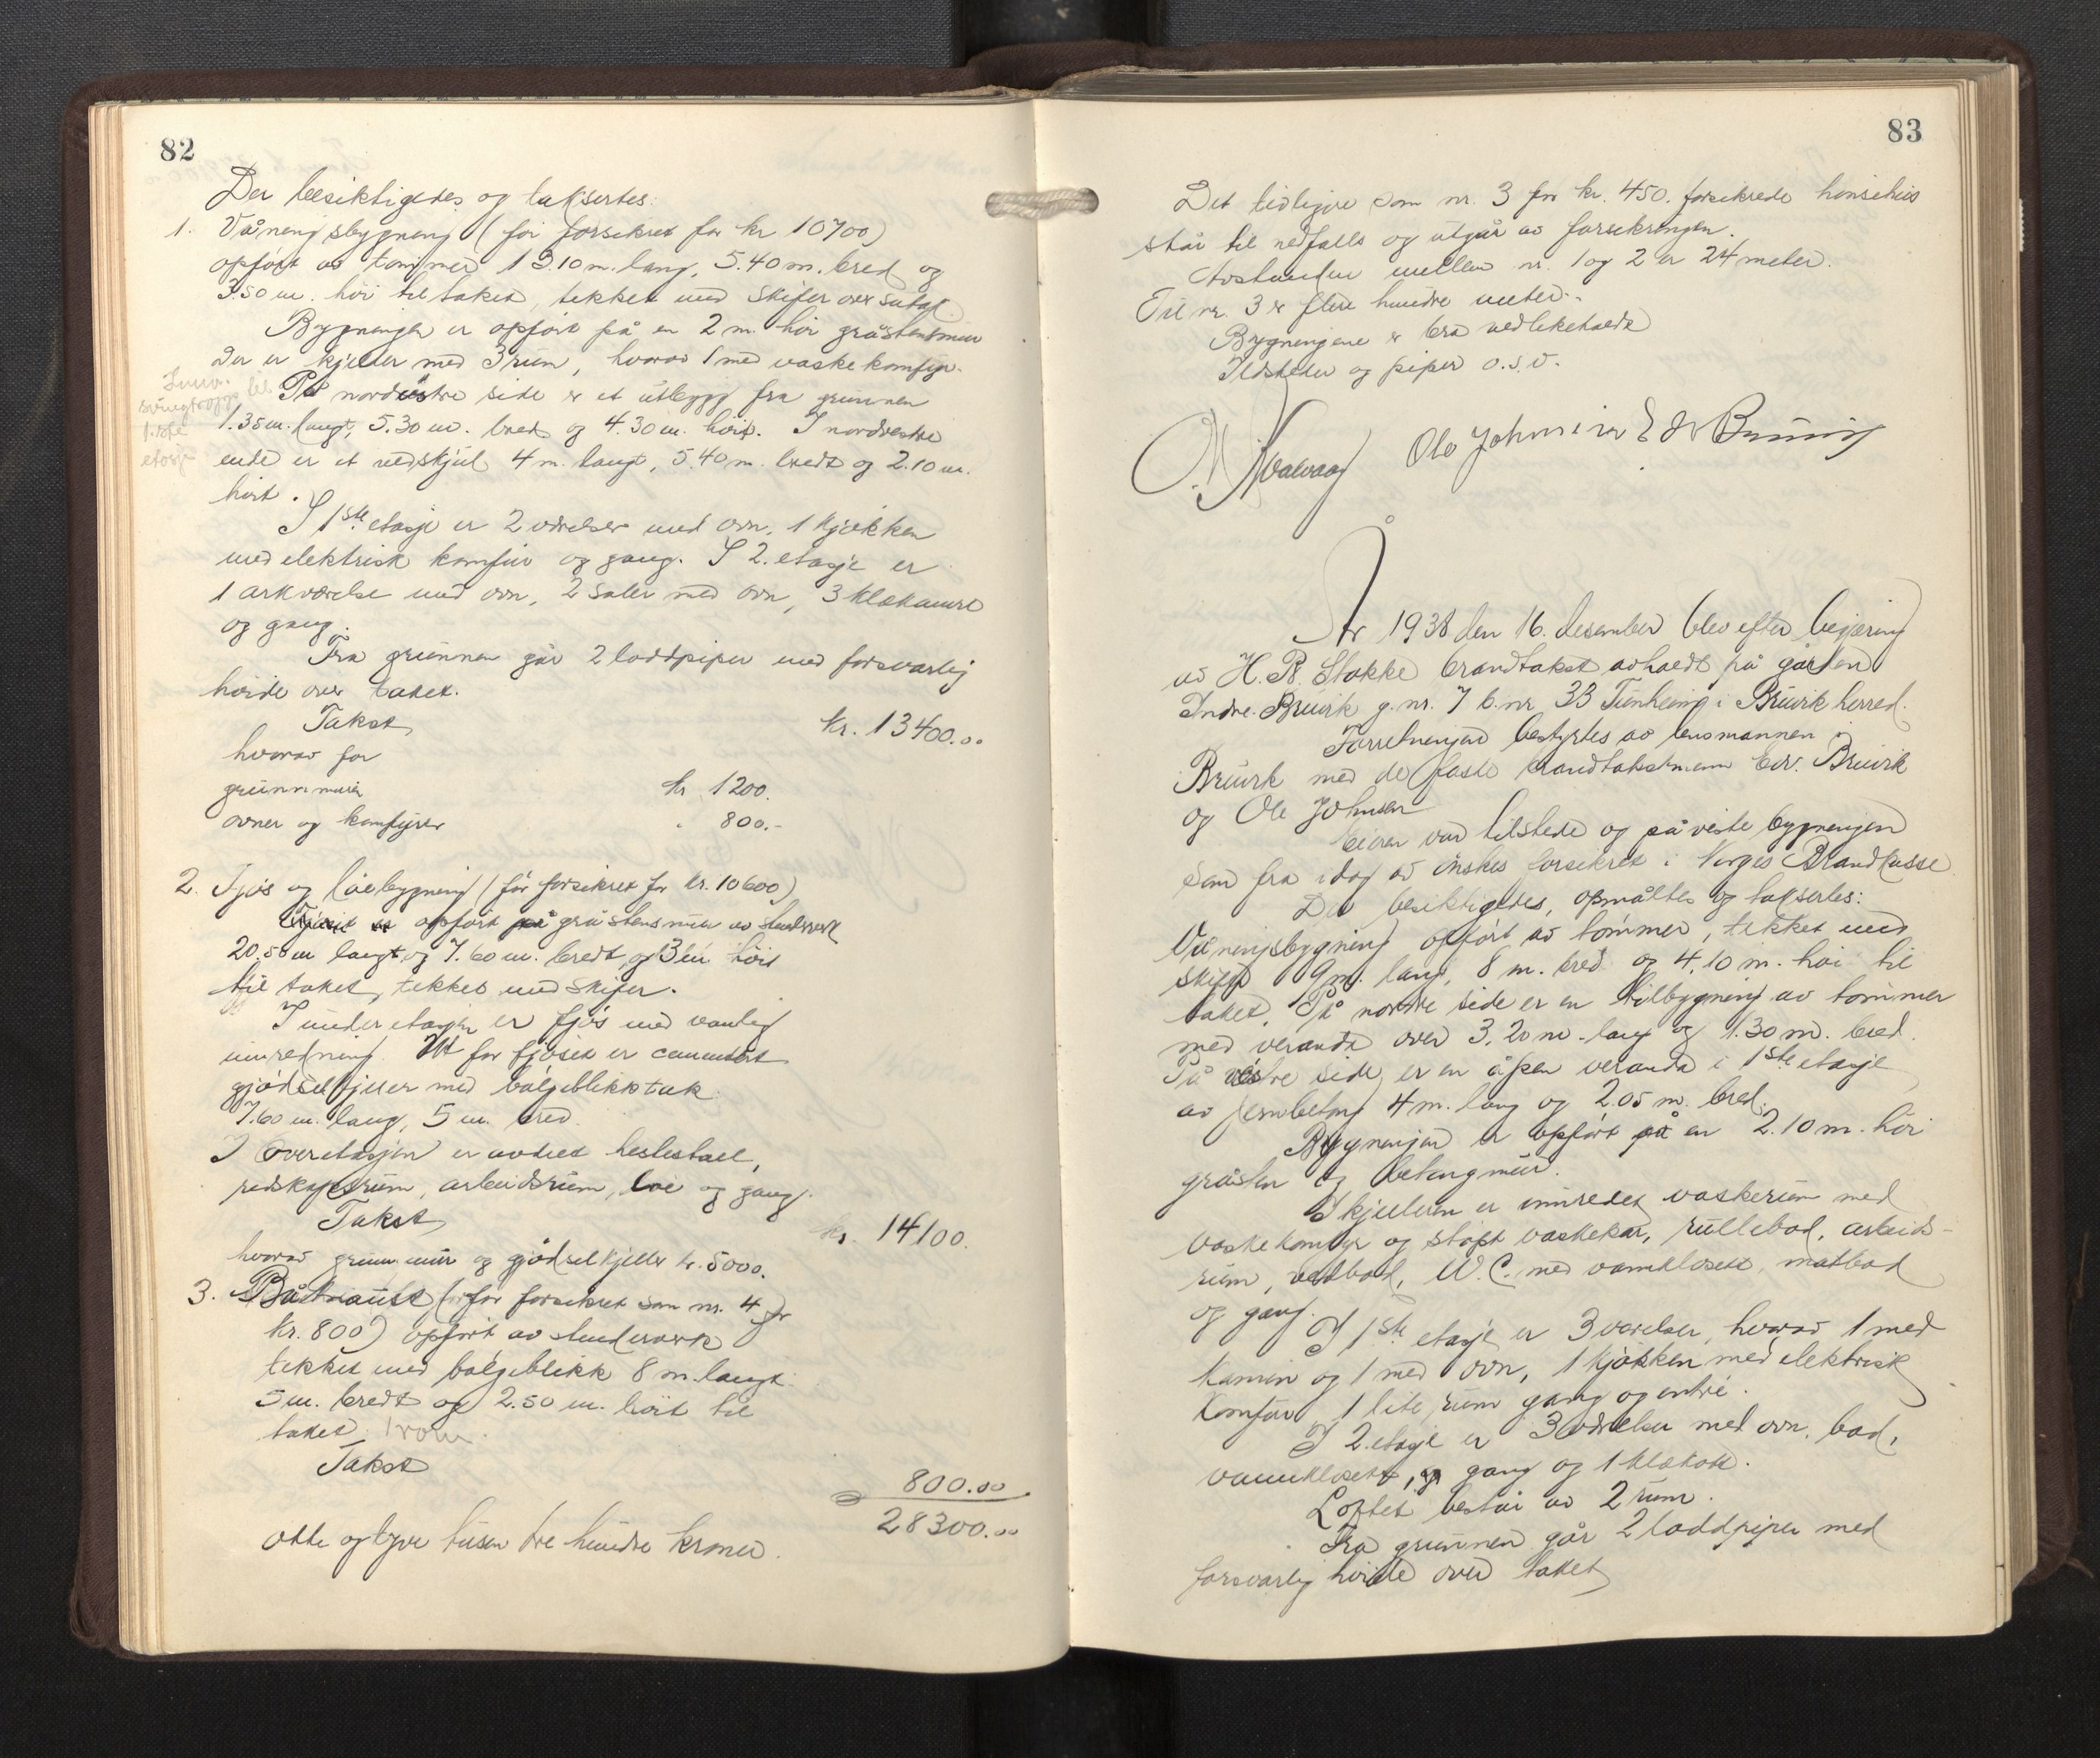 82
Der besiktigedes og taksertes:
1. Våningsbygning (før forsikret for kr 10700)
opført av tømmer 13.10 m. lang, 5.40 m. bred og
3.50 m. høi til taket, tekket med skifer over sutak.
Bygningen er opført på en 2 m. høi gråstensmur
Der er kjeller med 3 rum, hvorav 1 med vaskekomfyr.
På nordøstre side er et utbygg fra grunnen
1.35 m. langt, 5.30 m. bredt og 4.30 m. høit. I nordvestre
ende er et vedskjul 4 m. langt, 5.40 m. bredt og 2.10 m.
høit.
I 1ste etasje er 2 værelser med ovn, 1 kjøkken
med elektrisk komfür og gang. I 2. etasje er
1 arkværelse med ovn, 2 saler med ovn, 3 klækamre
og gang.
Fra grunnen går 2 loddpiper med forsvarlig
høide over taket.
Takst kr. 13400.00
hvorav for
grunnmuren kr 1200.
ovner og komfyrer " 800.-
2. Fjøs og løebygning (før forsikret for kr. 10600)
opført på gråstensmur av stenderverk
20.50 m langt og 7.60 m. bredt og 3 m høit
til taket, tekket med skifer.
I underetasjen er fjøs med vanlig
innredning. Ut for fjøset er cementert
gjødselkjeller med bølgeblikktak
7.60 m. lang, 5 m. bred.
I overetasjen er avdelt hestestall,
redskapsrum, arbeidsrum, løe og gang.
Takst kr. 14100.
hvorav grunnmur og gjødselkjeller kr. 5000.
3. Båtnaust (før forsikret som nr. 4 for
kr. 800) opført av stenderverk
tekket med bølgeblikk 8 m. langt
5 m. bredt og 2.50 m. høit til
taket. 1 rom.
Takst 800.00
28300.00
otte og tyve tusen tre hundre kroner.
83
Det tidligere som nr. 3 for kr. 450. forsikrede hønsehus
står til nedfalls og utgår av forsikringen.
Avstanden mellem nr. 1 og 2 er 24 meter.
Til nr. 3 er flere hundre meter.
Bygningene er bra vedlikeholdt
Ildsteder og piper o.s.v.
Ole Johnsen Edv Bruvik
År 1938 den 16. desember blev efter begjæring
av H. R. Stokke brandtakst avholdt på gården
Indre Bruvik g.nr. 7 b.nr 33 Tunheim i Bruvik herred.
Forretningen bestyrtes av lensmannen i
Bruvik med de faste brandtakstmenn Edv. Bruvik
og Ole Johnsen
Eieren var tilstede og påviste bygningen
som fra idag av ønskes forsikret i Norges Brandkasse
Der besiktigedes, opmåltes og taksertes:
Våningsbygning opført av tømmer, tekket med
skifer 9 m. lang, 8 m. bred og 4.10 m. høi til
taket. På nordre side er en tilbygning av tømmer
med veranda over 3.20 m. lang og 1.30 m. bred.
På vestre side er en åpen veranda i 1ste etasje
av jernbetong 4 m. lang og 2.05 m. bred.
Bygningen er opført på en 2.10 m. høi
gråsten og betongmur.
I kjelleren er innredet vaskerum med
vaskekomfyr og støpt vaskekar, rullebod, arbeids-
rum, vedbod, W.C. med vannklosett, matbod
og gang.
I 1ste etasje er 3 værelser, hvorav 1 med
kamin og 1 med ovn, 1 kjøkken med elektrisk
komfür 1 lite rum gang og entre.
I 2. etasje er 3 værelser med ovn, bad,
vannklosett, gang og 1 klækott.
Loftet består av 2 rum.
Fra grunnen går 2 loddpiper med
forsvarlig høide over taket